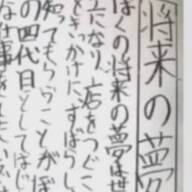 将来の夢
ぼくの将来の夢は世
になり、店をつぐこ
きっかけに、すばらし
知ってもらうことがぼ
の四代目としてはじ